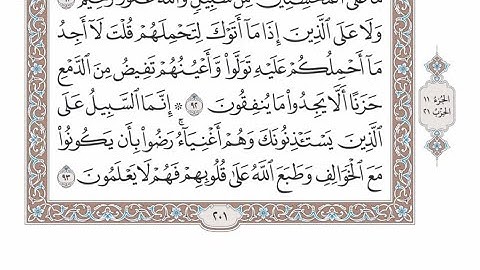 مَا عَلَى ٱلۡمُحۡسِنِينَ مِن سَبِيلٖۚ وَٱللَّهُ غَفُورٞ رَّحِيمٞ ٩١
وَلَا عَلَى ٱلَّذِينَ إِذَا مَآ أَتَوۡكَ لِتَحۡمِلَهُمۡ قُلۡتَ لَآ أَجِدُ
مَآ أَحۡمِلُكُمۡ عَلَيۡهِ تَوَلَّواْ وَّأَعۡيُنُهُمۡ تَفِيضُ مِنَ ٱلدَّمۡعِ
حَزَنًا أَلَّا يَجِدُواْ مَا يُنفِقُونَ ٩٢ ۞ إِنَّمَا ٱلسَّبِيلُ عَلَى
ٱلَّذِينَ يَسۡتَـٔۡذِنُونَكَ وَهُمۡ أَغۡنِيَآءُۚ رَضُواْ بِأَن يَكُونُواْ
مَعَ ٱلۡخَوَالِفِ وَطَبَعَ ٱللَّهُ عَلَىٰ قُلُوبِهِمۡ فَهُمۡ لَا يَعۡلَمُونَ ٩٣
الجزء ١١
الحزب ٢١
٢٠١